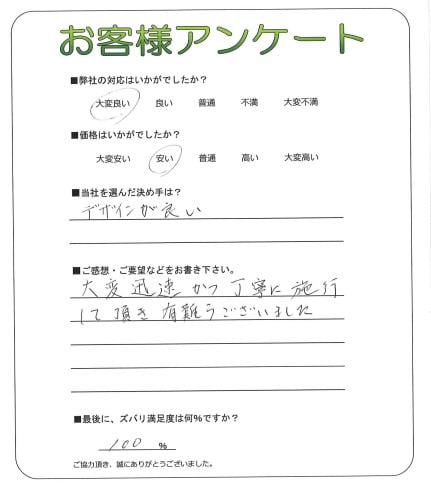 お客様アンケート
■弊社の対応はいかがでしたか?
大変良い 良い 普通 不満 大変不満
■価格はいかがでしたか?
大変安い 安い 普通 高い 大変高い
■当社を選んだ決め手は?
デザインが良い
■ご感想・ご要望などをお書き下さい。
大変迅速かつ丁寧に施行
して頂き有難うございました
■最後に、ズバリ満足度は何%ですか?
100 %
ご協力頂き、誠にありがとうございました。